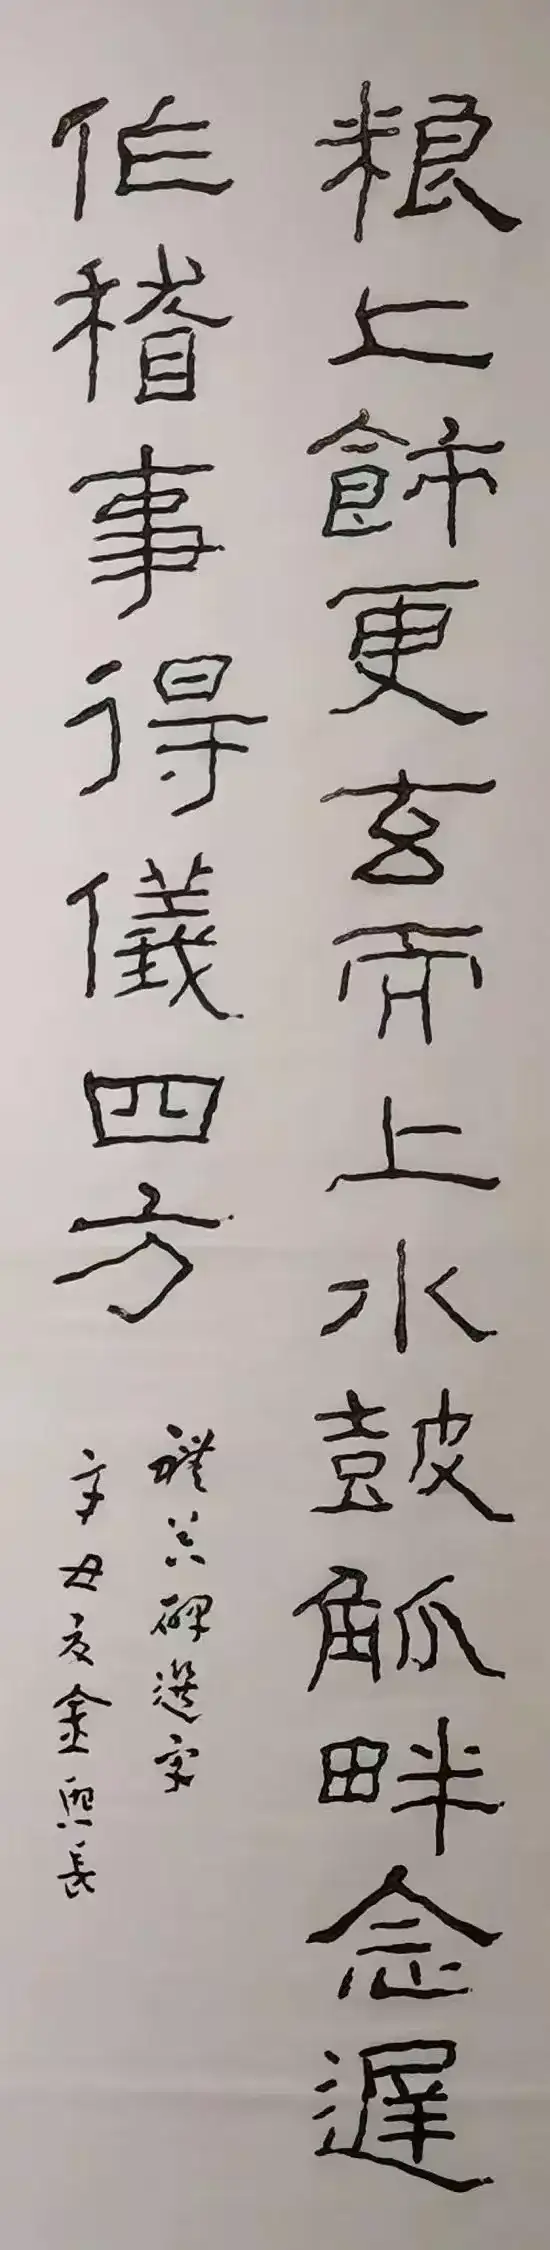 粮上飾更玄帝上水鼓觚畔念遲
作稽事得儀四方
禮器碑選字
辛丑夏金興長